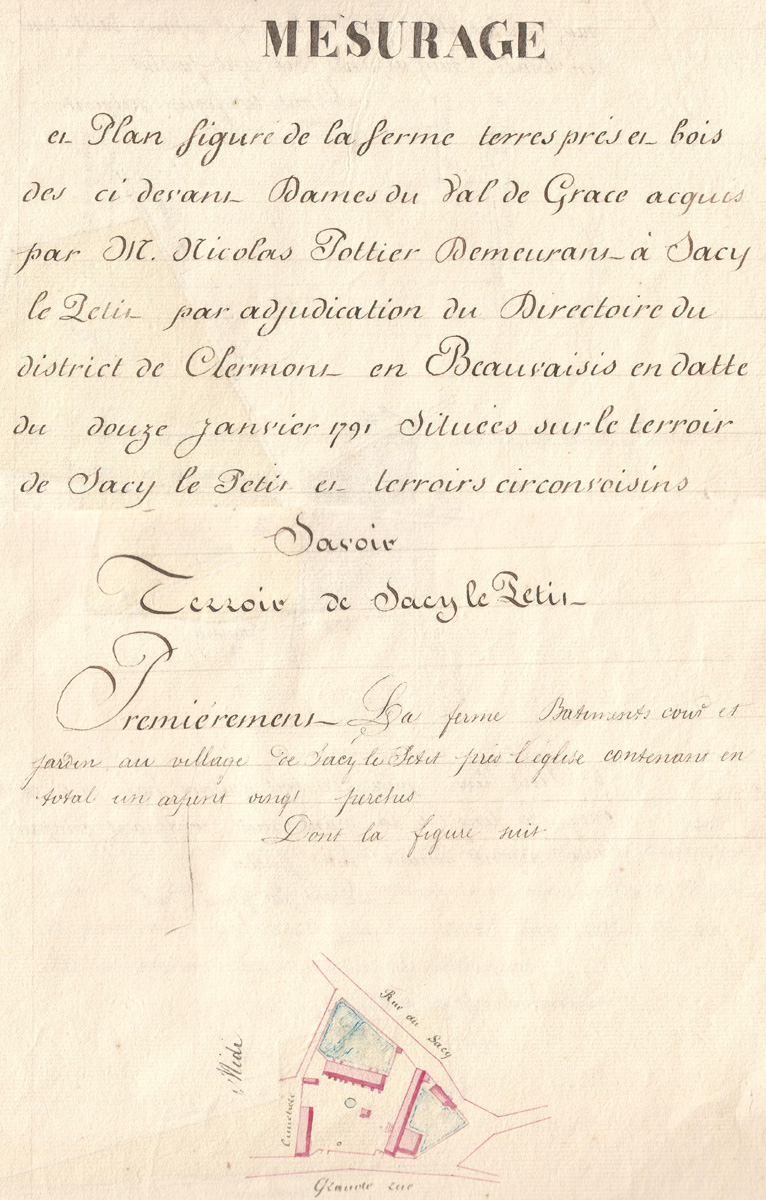 MESURAGE
et Plan figuré de la ferme terres prés et bois
des ci devant Dames du Val de Grace acquis
par M. Nicolas Pottier Demeurant à Sacy
le Petit par adjudication du Directoire du
district de Clermont en Beauvaisis en datte
du douze Janvier 1791 Situées sur le terroir
de Sacy le Petit et terroirs circonvoisins
Savoir
Terroir de Sacy le Petit
Premiérement La ferme Batiments cour et
jardin au village de Sacy le Petit près l'église contenant en
total un arpent vingt perches
Dont la figure suit
Rue du Sacy
Midi
Cimetiere
Grande rue